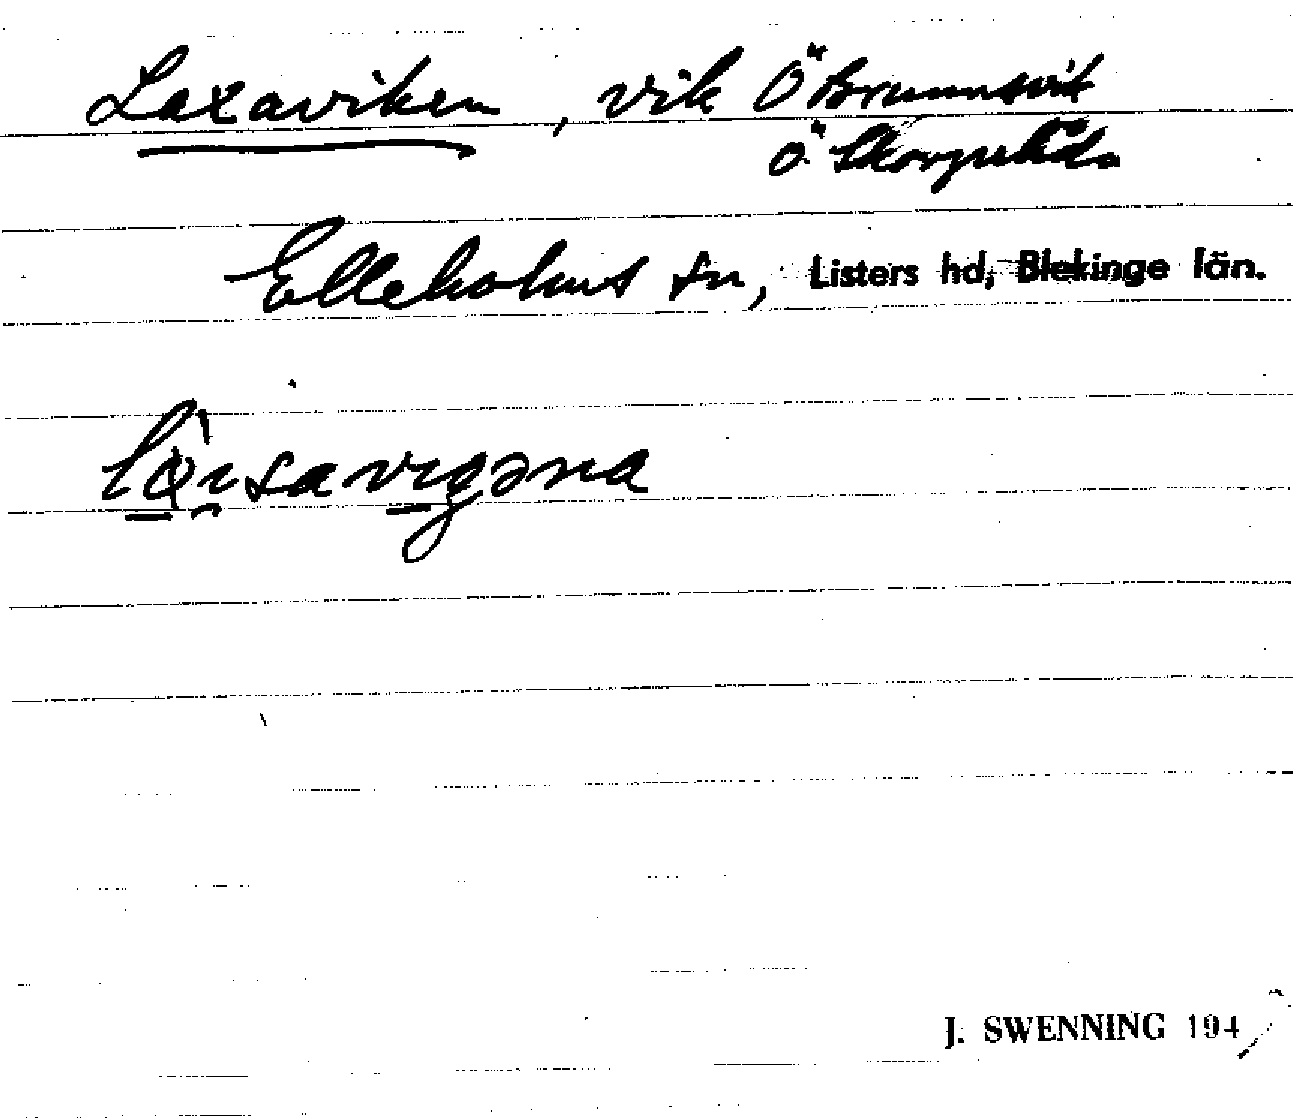 Laxaviken, vik Ö Brunnsvik
Ö
Elleholms sn, Listers hd, Blekinge län.
J. SWENNING 194